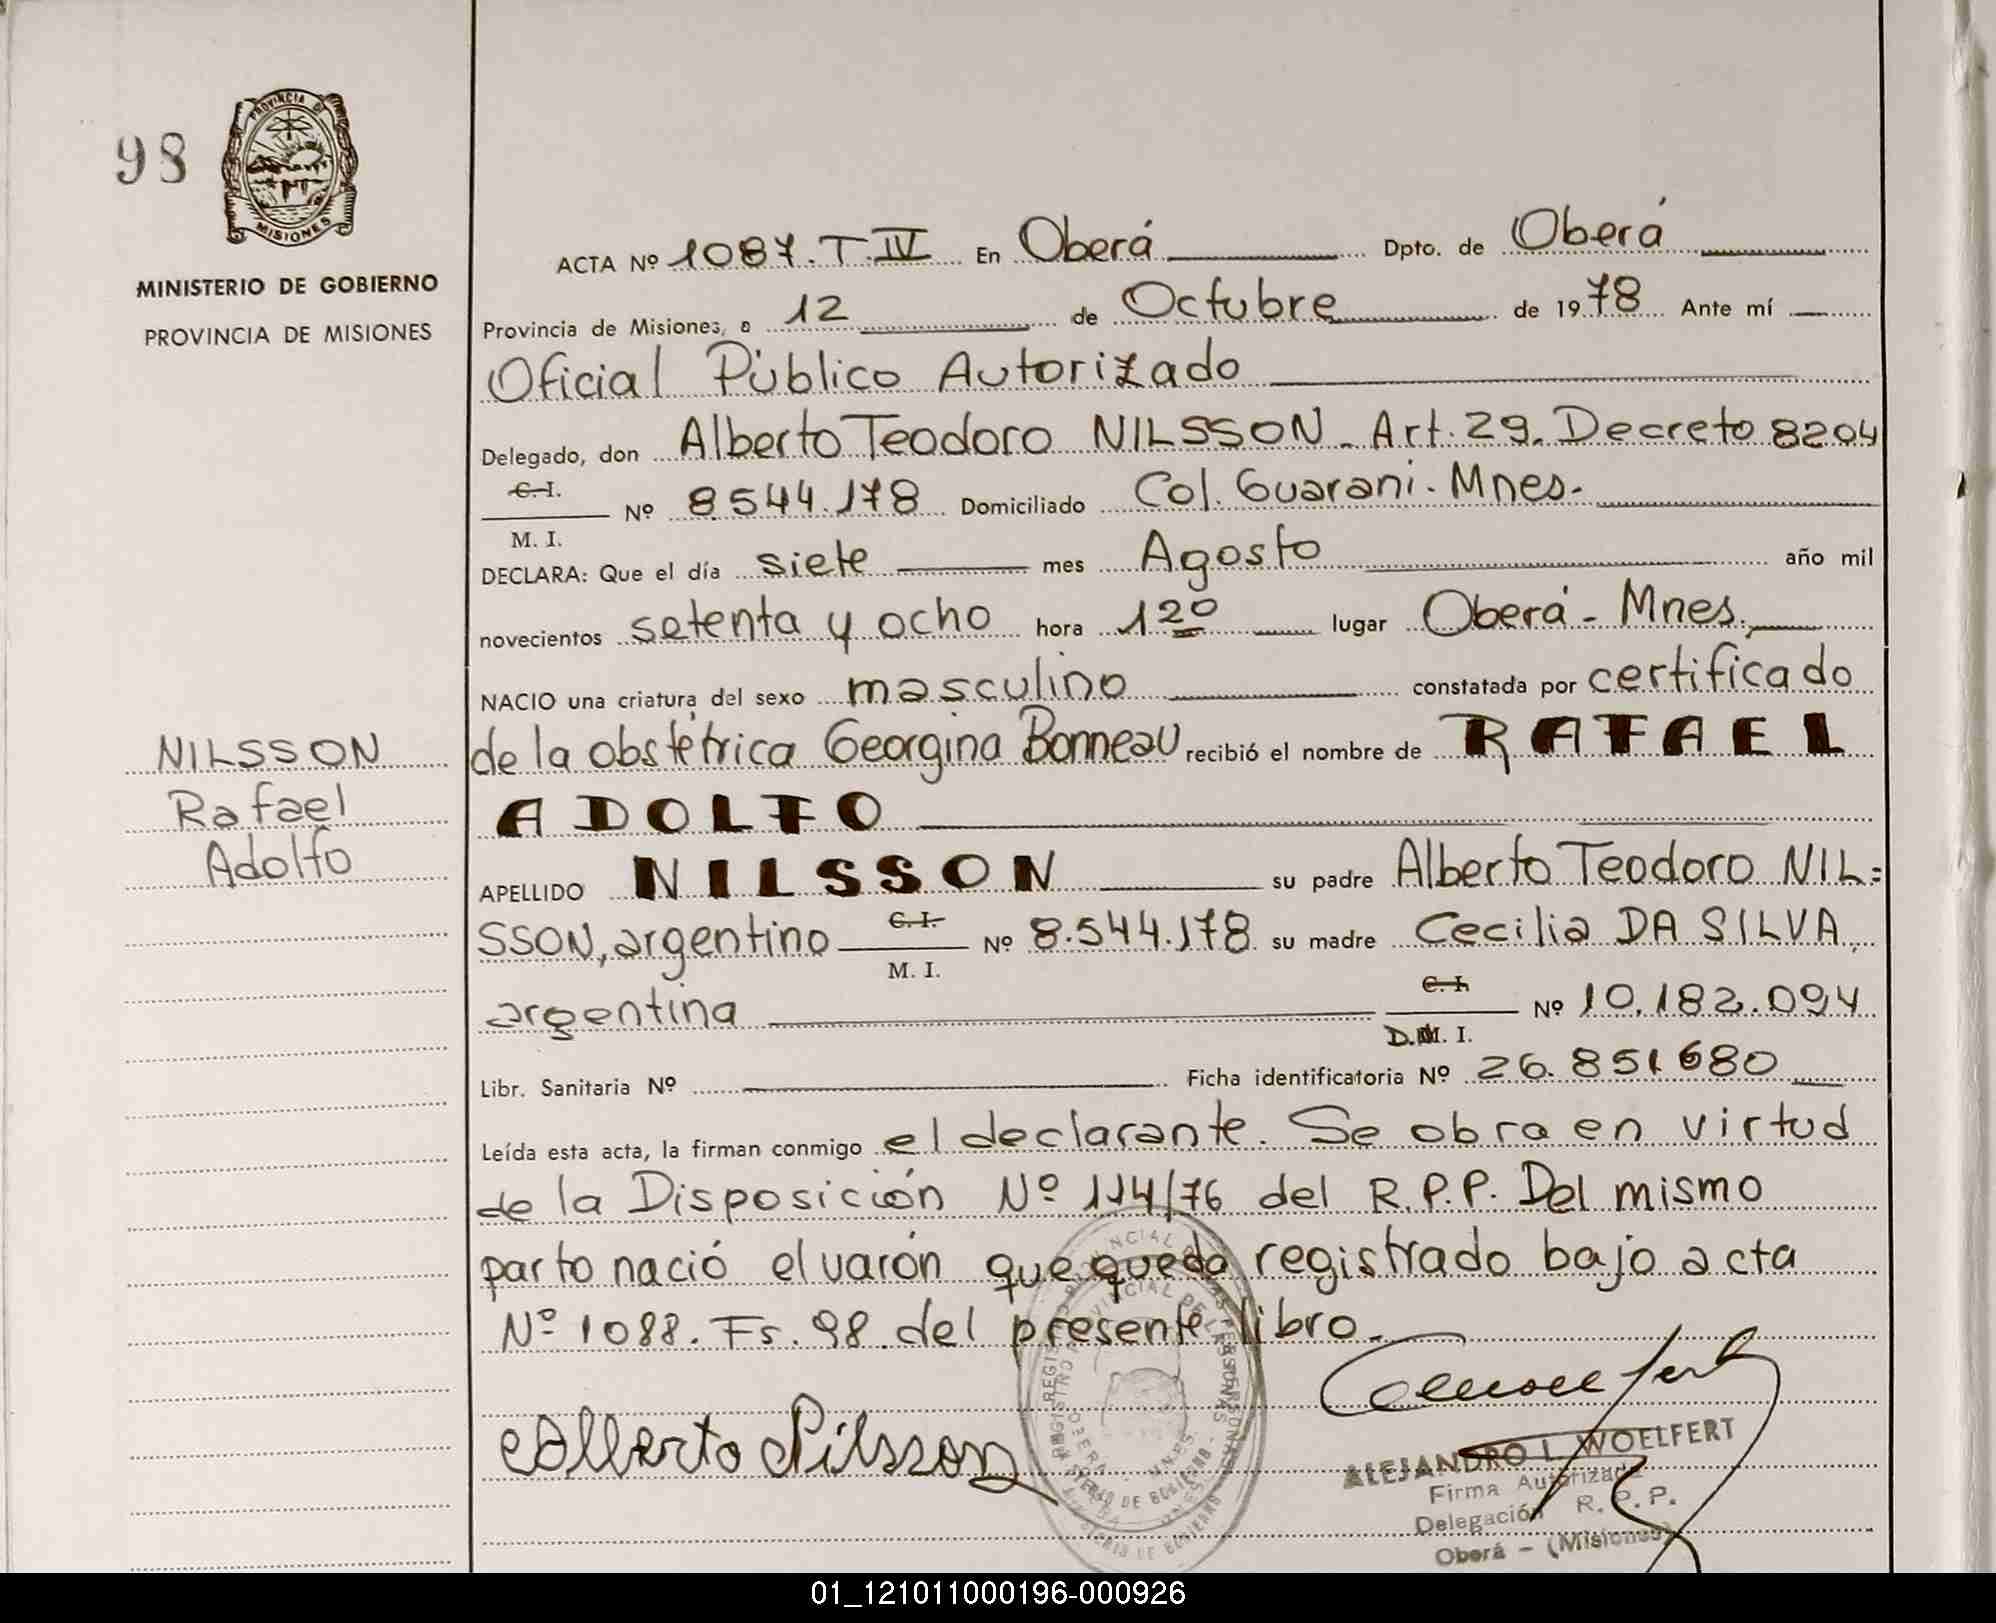 98
PROVINCIA DE
MISIONES
MINISTERIO DE GOBIERNO
PROVINCIA DE MISIONES
ACTA Nº 1087.T.IV En Oberá Dpto. de Oberá
Provincia de Misiones, a 12 de Octubre de 1978 Ante mí
Oficial Público Autorizado
Delegado, don Alberto Teodoro NILSSON. Art. 29. Decreto 8204
C.I.
M. I. Nº 8.544.178 Domiciliado Col. Guarani. Mnes.
DECLARA: Que el día siete mes Agosto año mil
novecientos setenta y ocho hora 12º lugar Oberá - Mnes.,
NACIO una criatura del sexo masculino constatada por certificado
de la obstétrica Georgina Bonneau recibió el nombre de RAFAEL
ADOLFO
NILSSON
Rafael
Adolfo
APELLIDO NILSSON su padre Alberto Teodoro NIL=
SSON, argentino C.I. M. I. Nº 8.544.178 su madre Cecilia DA SILVA,
argentina C.I. D.M. I. Nº 10.182.094
Libr. Sanitaria Nº Ficha identificatoria Nº 26.851.680
Leída esta acta, la firman conmigo el declarante. Se obra en virtud
de la Disposición Nº 114/76 del R.P.P. Del mismo
parto nació el varón que queda registrado bajo acta
Nº 1088. Fs. 98 del presente libro.
Alberto Nilsson
ALEJANDRO L. WOELFERT
Firma Autorizada
Delegación R. P. P.
Oberá - (Misiones)
01_121011000196-000926